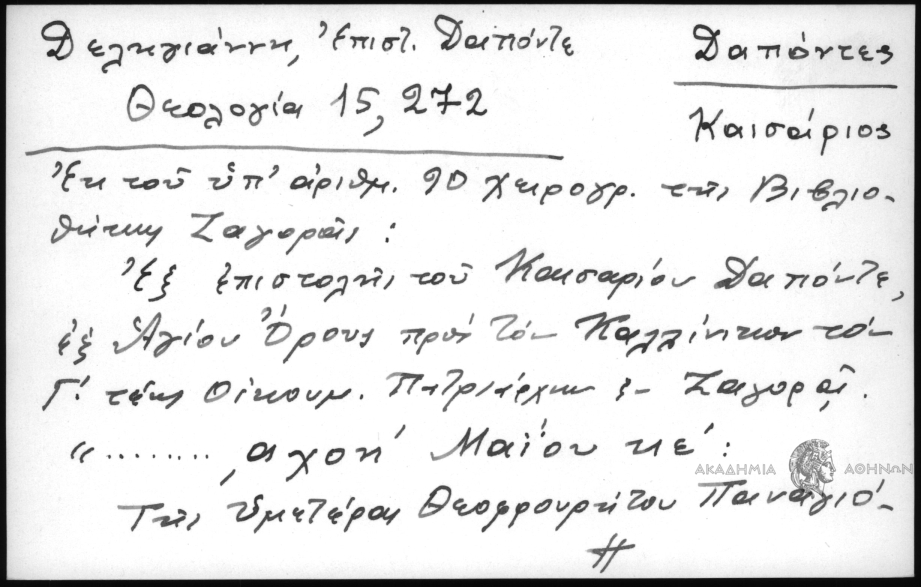 Δεληγιάννη, Ἐπιστ. Δαπόντε
Δαπόντες
Θεολογία 15, 272
Καισάριος
Ἐκ τοῦ ὑπ' ἀριθμ. 90 χειρογρ. τῆς Βιβλιο-
θήκης Ζαγορᾶς :
Ἐξ ἐπιστολῆς τοῦ Καισαρίου Δαπόντε,
ἐξ Ἁγίου Ὄρους πρὸς τὸν Καλλίνικον τὸν
Γ΄. τέως Οἰκουμ. Πατριάρχην ἐν Ζαγορᾷ.
"........ ,αχοη' Μαΐου κε' :
ΑΚΑΔΗΜΙΑ ΑΘΗΝΩΝ
Τῆς Ὑμετέρας Θεοφρουρήτου Παναγιό-